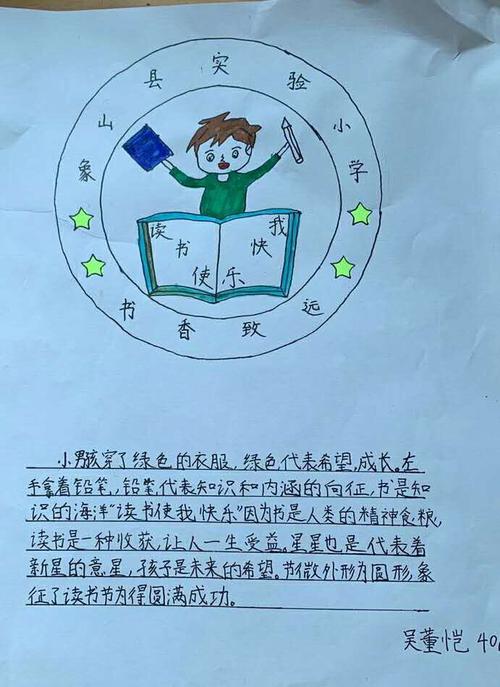 象山县实验小学
读书使我快乐
书香致远
小男孩穿了绿色的衣服，绿色代表希望,成长。左
手拿着铅笔,,铅笔代表知识和内涵的向征,书是知
识的海洋"读书使我快乐"因为书是人类的精神食粮,
读书是一种收获,让人一生受益。星星也是代表着
新星的意星,孩子是未来的希望。节微外形为圆形,象
征了读书节为得圆满成功。
吴董恺 40